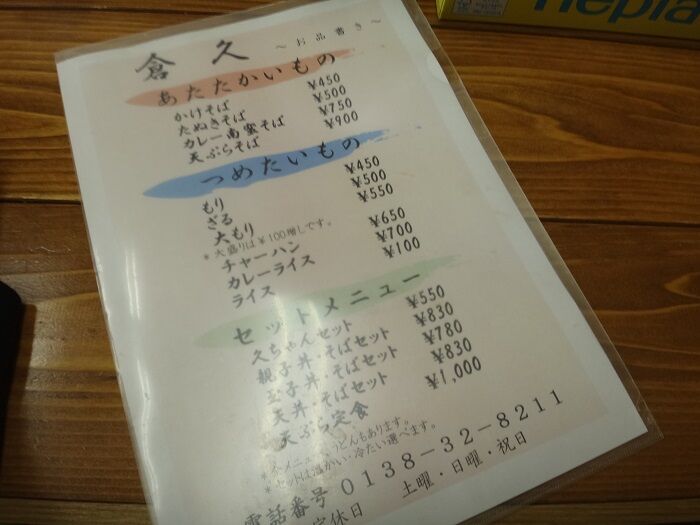 nepia
倉久 ～お品書き～
あたたかいもの
かけそば ¥450
たぬきそば ¥500
カレー南蛮そば ¥750
天ぷらそば ¥900
つめたいもの
もり ¥450
ざる ¥500
大もり ¥550
*大盛りは¥100増しです。
チャーハン ¥650
カレーライス ¥700
ライス ¥100
セットメニュー
久ちゃんセット ¥550
親子丼・そばセット ¥830
玉子丼・そばセット ¥780
天丼・そばセット ¥830
天ぷら定食 ¥1,000
*本メニューうどんもあります。
*セットは温かい・冷たい選べます。
電話番号 0138-32-8211
定休日 土曜・日曜・祝日